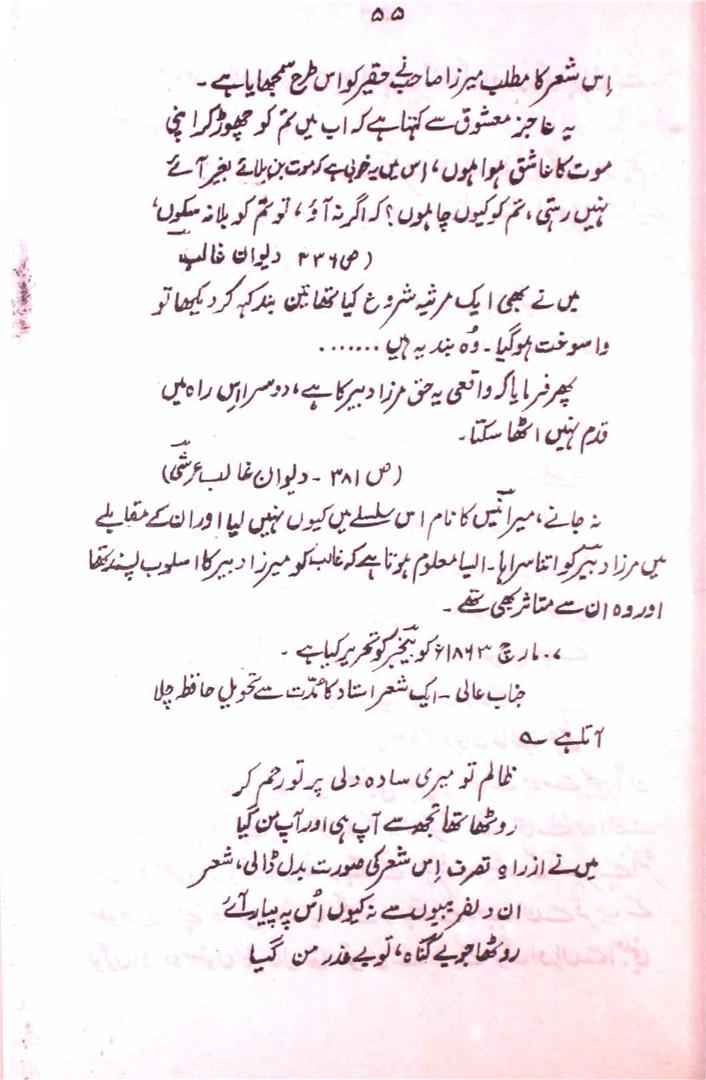 ۵۵
اِس شعر کا مطلب میرزا صاحبؔ نے حقیر کو اس طرح سمجھایا ہے ۔
یہ عاجز معشوق سے کہتا ہے کہ اب میں تم کو چھوڑ کر اپنی
موت کا عاشق ہوا ہوں، اِس میں یہ خوبی ہے کہ موت بن بلائے بغیر آئے
نہیں رہتی، تم کو کیوں چاہوں؟ کہ اگر نہ آؤ، تو تم کو بلا نہ سکوں،
(ص ۲۳۶ دیوان غالبؔ
میں نے بھی ایک مرثیہ شروع کیا تھا تین بند کہہ کر دیکھا تو
واسوخت ہوگیا۔ وُہ بند یہ ہیں .......
پھر فرمایا کہ واقعی یہ حق مرزا دبیر کا ہے، دوسرا اِس راہ میں
قدم نہیں اٹھا سکتا۔
(ص ۳۸۱ - دیوان غالب عرشیؔ)
نہ جانے، میر انیسؔ کا نام اس سلسلے میں کیوں نہیں لیا اور ان کے مقابلے
میں مرزا دبیرؔ کو اتنا سراہا۔ ایسا معلوم ہوتا ہے کہ غالب کو میرزا دبیر کا اسلوب پسند تھا
اور وہ ان سے متاثر بھی تھے ۔
۷۔ مارچ ۱۸۶۳ء کو بیخبرؔ کو تحریر کیا ہے ۔
جناب عالی - ایک شعر استاد کا مُدّت سے تحویلِ حافظہ چلا
آتا ہے ؎
ظالم تو میری سادہ دلی پر تو رحم کر
روٹھا تھا تجھ سے آپ ہی اور آپ من گیا
میں نے ازراہِ تصرف اِس شعر کی صورت بدل ڈالی، شعر
ان دلفریبیوں سے نہ کیوں اُس پہ پیار آئے
روٹھا جو بے گناہ، تو بے عذر من گیا